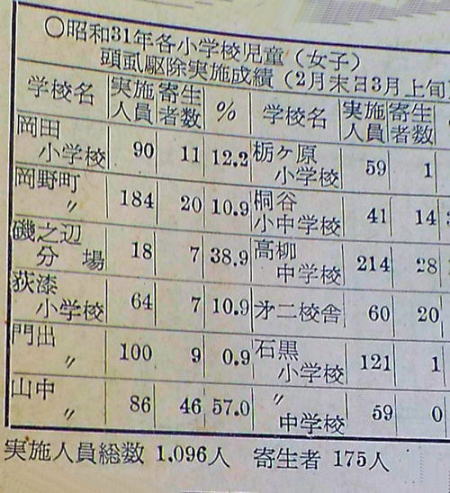 〇昭和31年各小学校児童(女子)
頭虱駆除実施成績(2月末日3月上旬)
学校名 実施人員 寄生者数 % 学校名 実施人員 寄生者数
岡田小学校 90 11 12.2 栃ヶ原小学校 59 1
岡野町〃 184 20 10.9 桐谷小中学校 41 14
磯之辺分場 18 7 38.9 高柳中学校 214 28
荻漆小学校 64 7 10.9 㐧二校舎 60 20
門出〃 100 9 0.9 石黒小学校 121 1
山中〃 86 46 57.0 〃中学校 59 0
実施人員総数 1,096人 寄生者 175人